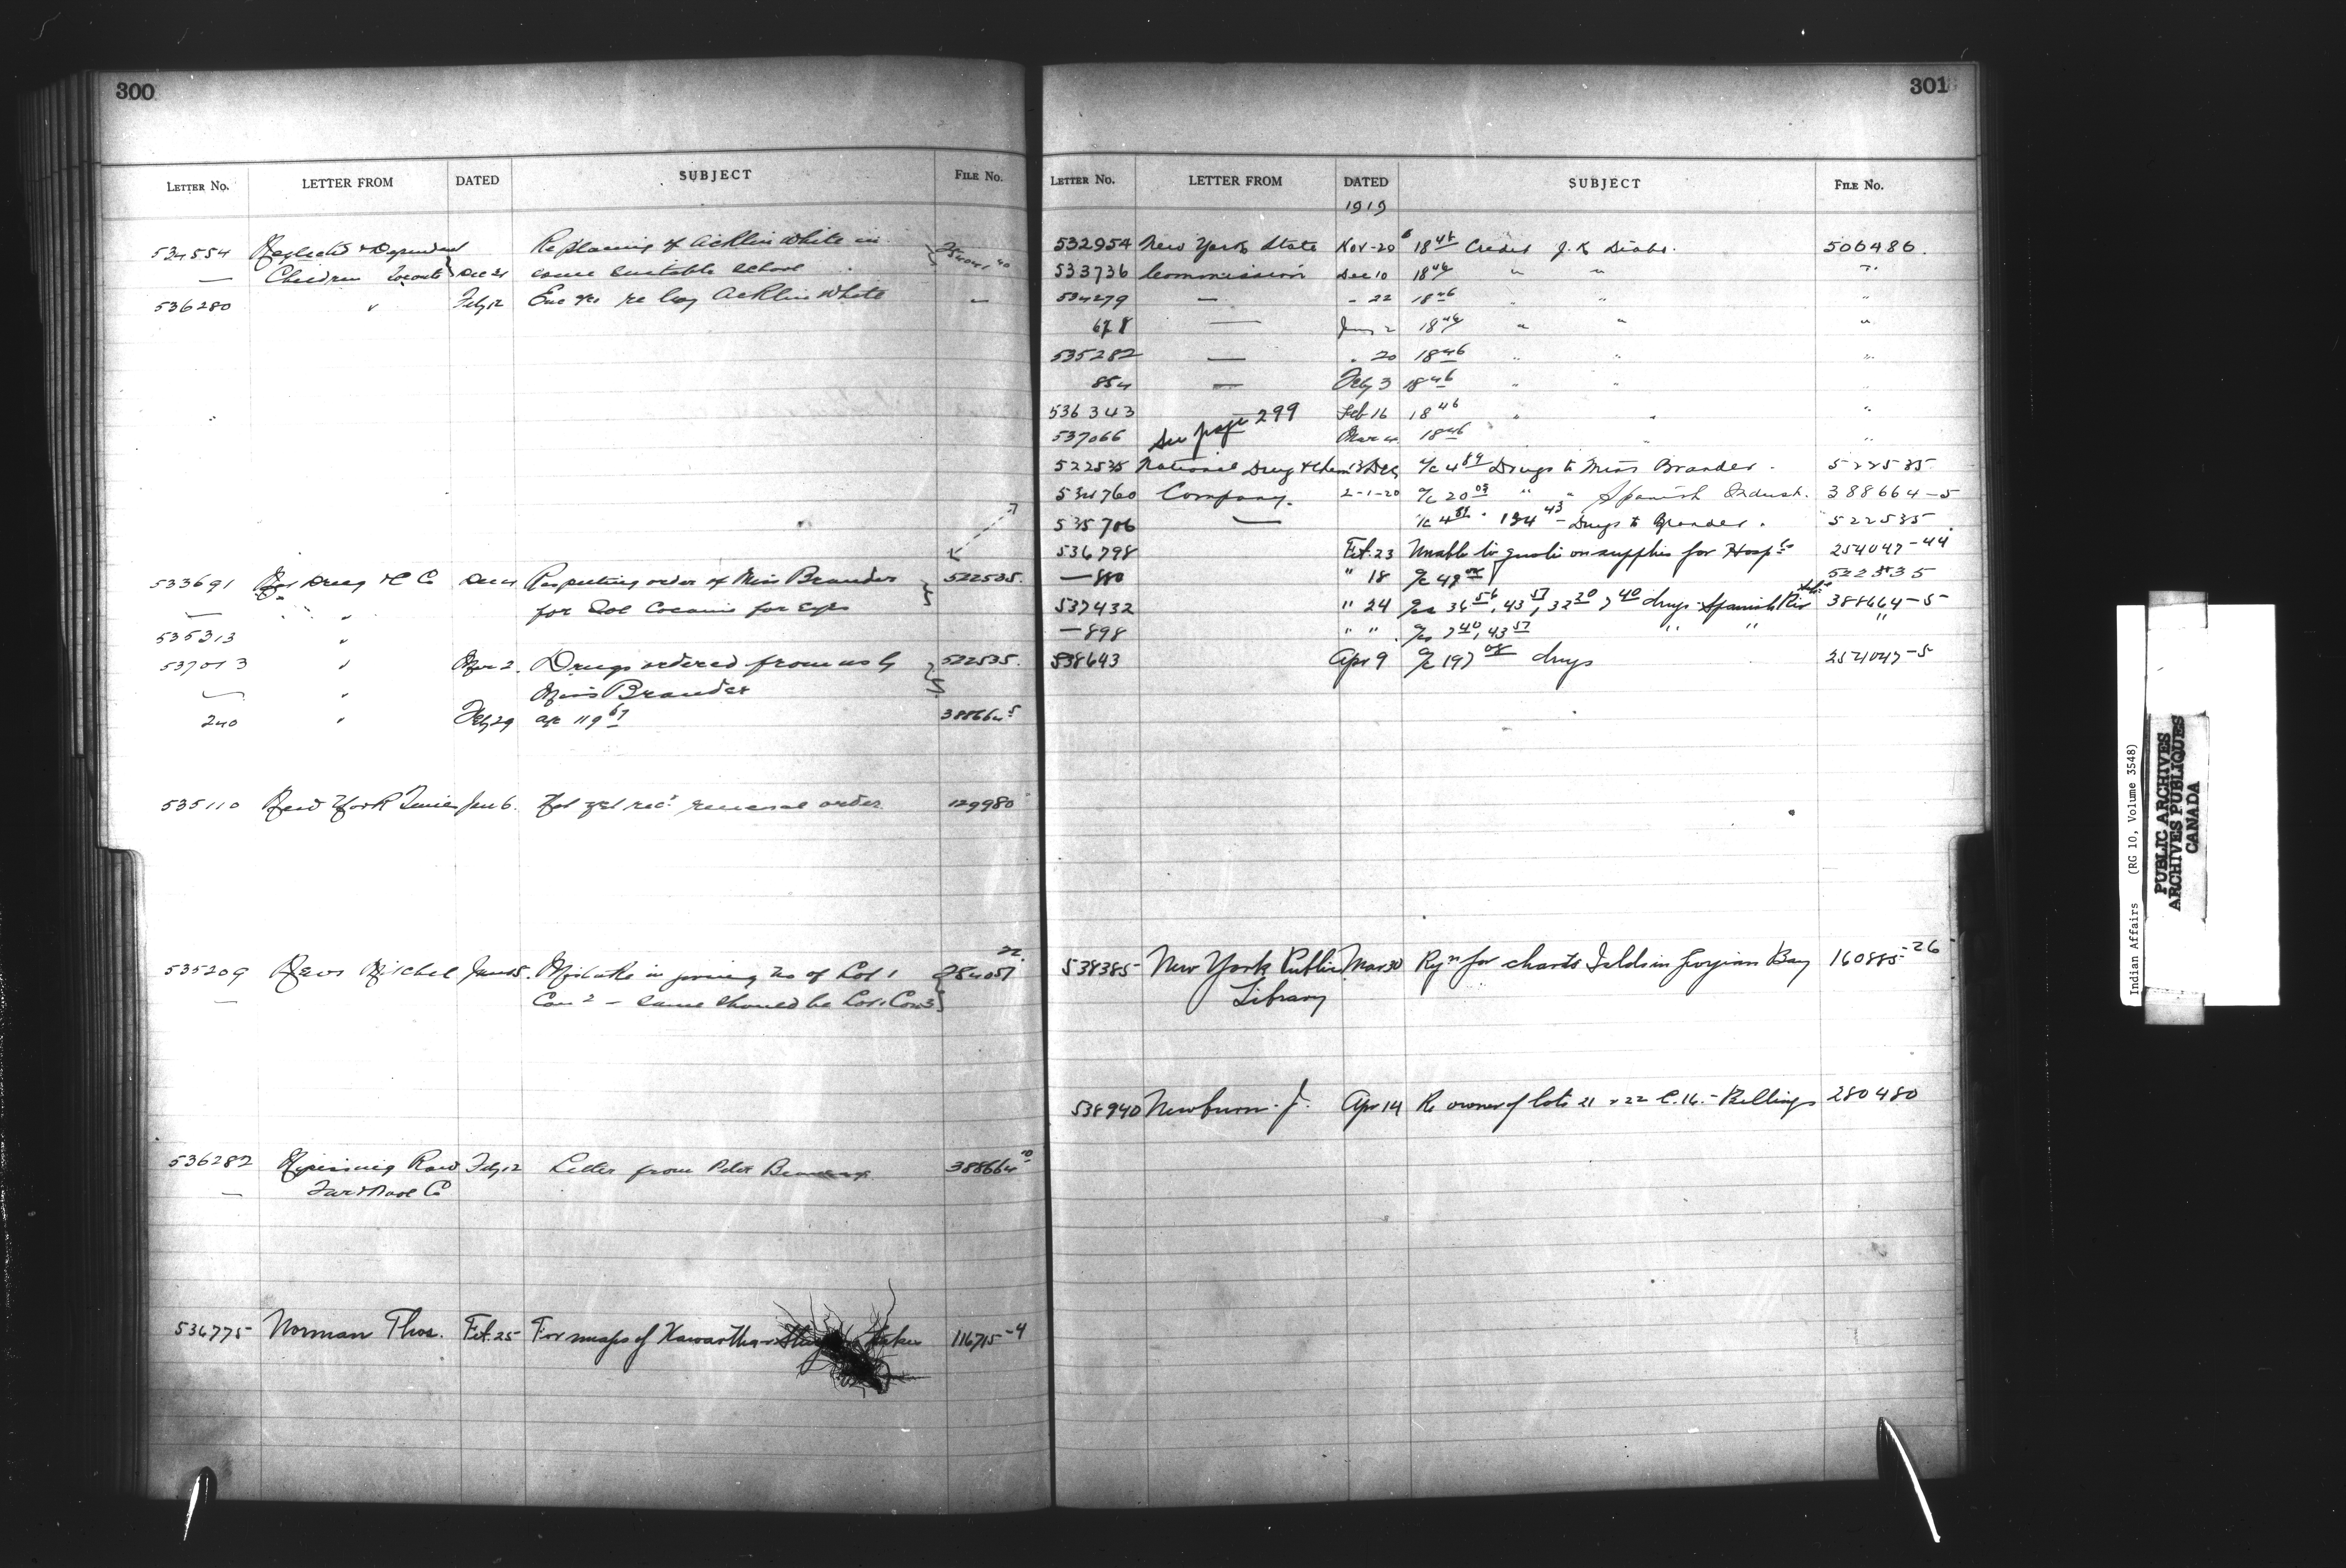 300
LETTER No. LETTER FROM DATED SUBJECT FILE No.
534554 Neglected & Dependent Replacing of Acklin White in 254041 40
— Children Toronto Dec 24 some suitable school
536280 " Feb 12 re boy Acklin White "
533691 Nat Drug & C Co Dec 4 Respecting order of Miss Brander 522535.
— " for Sol Cocaine for eyes
535313 "
537013 " Mar 2. Drugs ordered from us by 522535.
— " Miss Brander
240 " Feb 29 a/c 119 67 388664 5
535110 New York Times Jan 6. renewal order 129980
535209 News Mitchel Jan 15. Mistake in giving no of Lot 1 284057 22
— Con 2 — same should be Lot 1 Con 3
536282 Nipissing Raw Feb 12 Letter from Peter 388664 10
— Fur & Wool Co
536775 Norman Thos. Feb. 25 For maps of Kawartha Lakes 116715-4
301
LETTER No. LETTER FROM DATED SUBJECT FILE No.
1919
532954 New York State Nov-20 18 46 Credit J. K 506486.
533736 Commission Dec 10 18 46 " " "
534279 — " 22 18 46 " " "
678 — Jan 2 18 46 " " "
535282 — " 20 18 46 " " "
854 — Feb 3 18 46 " " "
536343 Feb 16 18 46 " " "
537066 See page 299 Mar 4 18 46 " "
522535 National Drug & Chem 13 Dec a/c 4 89 Drugs to Miss Brander. 522535
534760 Company. 2-1-20 a/c 20 09 " " Spanish Indust. 388664-5
535706 — a/c 4 89 - 194 43 - Drugs to Brander. 522535
536798 Feb. 23 Unable to quote on supplies for Hosp 254047-44
— 880 " 18 a/c 49 522535
537432 " 24 a/cs 36 56, 43 57, 32 20 7 40 drugs Spanish Riv 388664-5
— 898 " " a/cs 7 40, 43 57 " " "
538643 Apr 9 a/c 197 08 drugs 254047-5
538385 New York Public Mar 30 Rqn for charts Islds in Georgian Bay 160885-26
Library
538940 Newburn. J. Apr 14 Re owner of lots 21 & 22 C. 16. - Billings 280480
Indian Affairs (RG 10, Volume 3548)
PUBLIC ARCHIVES
ARCHIVES PUBLIQUES
CANADA